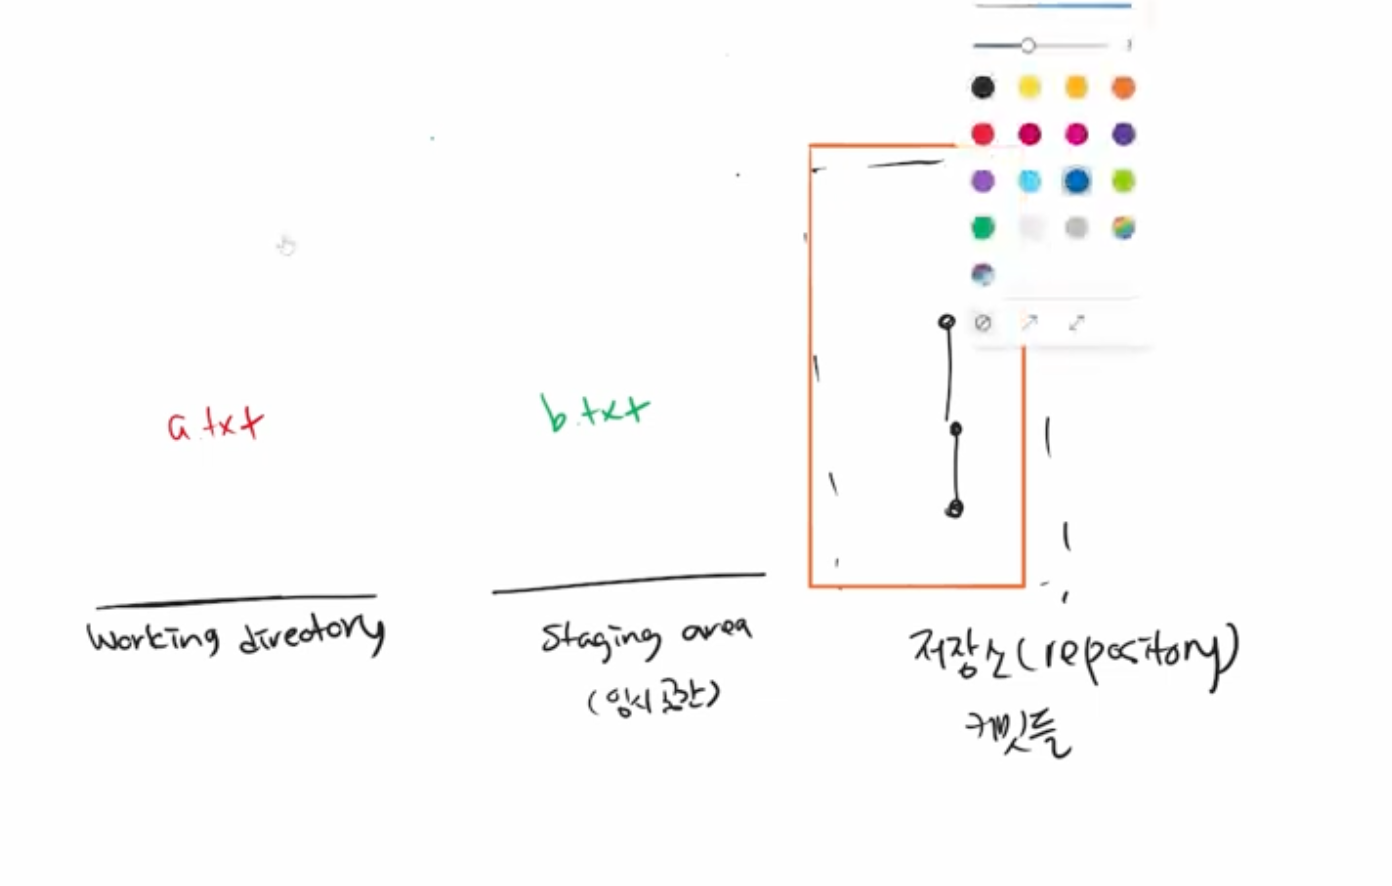 a.txt
b.txt
Working directory
Staging area
(임시 공간)
저장소(repository)
커밋들